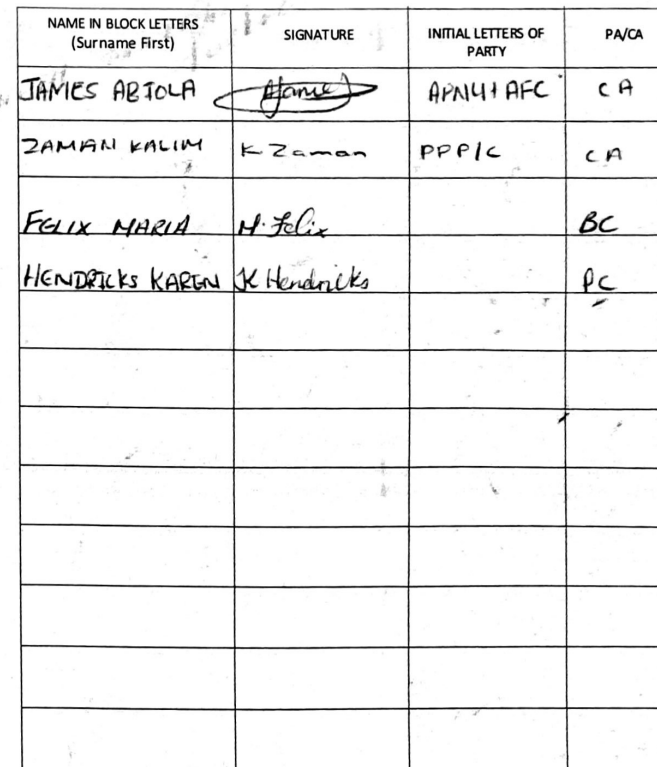 NAME IN BLOCK LETTERS (Surname First) SIGNATURE INITIAL LETTERS OF PARTY PA/CA
JAMES ABIOLA AJames APNU+AFC CA
ZAMAN KALIM K Zaman PPP/C CA
FELIX MARIA M. Felix BC
HENDRICKS KAREN K Hendricks PC